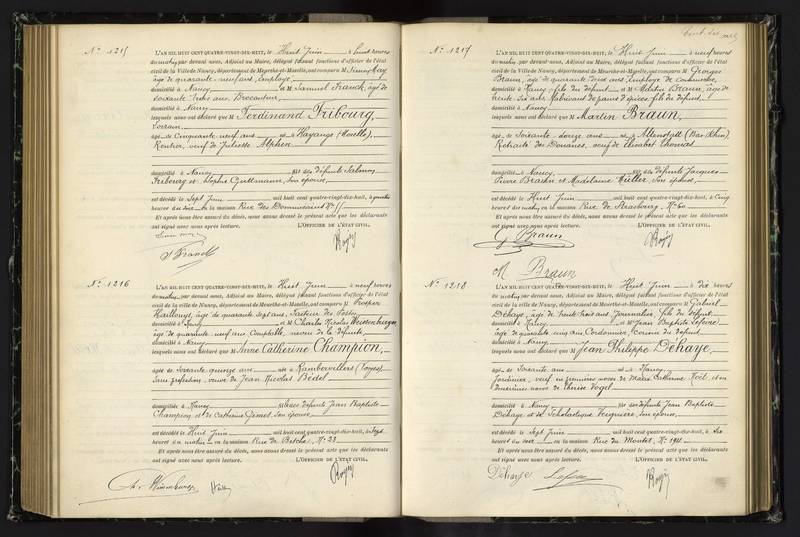 N° 1215
L'AN MIL HUIT CENT QUATRE-VINGT-DIX-HUIT, le Huit Juin à huit heures
du matin, par devant nous, Adjoint au Maire, délégué faisant fonctions d'officier de l'état
civil de la Ville de Nancy, département de Meurthe-et-Moselle, ont comparu M Simon May
âgé de quarante neuf ans, Employé
domicilié à Nancy et M Samuel Franck, âgé de
soixante trois ans, Brocanteur,
domicilié à Nancy
lesquels nous ont déclaré que M Ferdinand Fribourg,
âgé de Cinquante neuf ans né à Hayange (Moselle),
Rentier, veuf de Juliette Alphen
domicilié à Nancy fils des défunts Salmon
Fribourg et Sophie Guttmann, son épouse,
est décédé le Sept Juin mil huit cent quatre-vingt-dix-huit, à quatre
heures du soir en la maison Rue des Dominicains N°
Et après nous être assuré du décès, nous avons dressé le présent acte que les déclarants
ont signé avec nous après lecture. L'OFFICIER DE L'ÉTAT CIVIL,
S Franck
N° 1216
L'AN MIL HUIT CENT QUATRE-VINGT-DIX-HUIT, le Huit Juin à neuf heures
du matin, par devant nous, Adjoint au Maire, délégué faisant fonctions d'officier de l'état
civil de la ville de Nancy, département de Meurthe-et-Moselle, ont comparu M Prosper
âgé de quarante sept ans, Facteur des Postes,
domicilié à Nancy et M Charles Nicolas Weissenburger
âgé de quarante neuf ans Comptable, neveu de la défunte,
domicilié à Nancy
lesquels nous ont déclaré que M Anne Catherine Champion,
âgée de soixante quinze ans née à Rambervillers (Vosges),
sans profession, veuve de Jean Nicolas Bédel
domiciliée à Nancy fille des défunts Jean Baptiste
Champion et de Catherine son épouse,
est décédée le Huit Juin mil huit cent quatre-vingt-dix-huit, à sept
heures du matin en la maison Rue de Bitche, N° 23
Et après nous être assuré du décès, nous avons dressé le présent acte que les déclarants
ont signé avec nous après lecture. L'OFFICIER DE L'ÉTAT CIVIL,
N° 1217
L'AN MIL HUIT CENT QUATRE-VINGT-DIX-HUIT, le Huit Juin à neuf heures
du matin, par devant nous, Adjoint au Maire, délégué faisant fonctions d'officier de l'état
civil de la Ville de Nancy, département de Meurthe-et-Moselle, ont comparu M Georges
Braun, âgé de quarante trois ans, Employé de commerce,
domicilié à Nancy fils du défunt et M Martin Braun, âgé de
trente six ans, Fabricant de pains d'épices fils du défunt,
domicilié à Nancy
lesquels nous ont déclaré que M Martin Braun,
âgé de Soixante douze ans né à Altenstatt (Bas Rhin),
Retraité des Douanes, veuf de Elisabet Thomas
domicilié à Nancy fils des défunts Jacques
Pierre Braun et Madelaine Müller, son épouse,
est décédé le Huit Juin mil huit cent quatre-vingt-dix-huit, à Cinq
heures du matin en la maison Rue de Strasbourg, N° 60
Et après nous être assuré du décès, nous avons dressé le présent acte que les déclarants
ont signé avec nous après lecture. L'OFFICIER DE L'ÉTAT CIVIL,
G Braun
M Braun
N° 1218
L'AN MIL HUIT CENT QUATRE-VINGT-DIX-HUIT, le Huit Juin à dix heures
du matin, par devant nous, Adjoint au Maire, délégué faisant fonctions d'officier de l'état
civil de la ville de Nancy, département de Meurthe-et-Moselle, ont comparu M Gabriel
Déhaye, âgé de trente trois ans, Journalier, fils du défunt,
domicilié à Nancy et M Jean Baptiste Lefevre
âgé de quarante cinq ans Cordonnier, cousin du défunt
domicilié à Nancy
lesquels nous ont déclaré que M Jean Philippe Déhaye,
âgé de Soixante ans né à Nancy
Jardinier, veuf en premières noces de Marie Catherine Noël, et en
deuxièmes noces de Thérèse Vogel
domicilié à Nancy fils des défunts Jean Baptiste
Déhaye et de Scholastique son épouse,
est décédé le Sept Juin mil huit cent quatre-vingt-dix-huit, à six
heures du soir en la maison Rue de Montet, N°
Et après nous être assuré du décès, nous avons dressé le présent acte que les déclarants
ont signé avec nous après lecture. L'OFFICIER DE L'ÉTAT CIVIL,
Déhaye